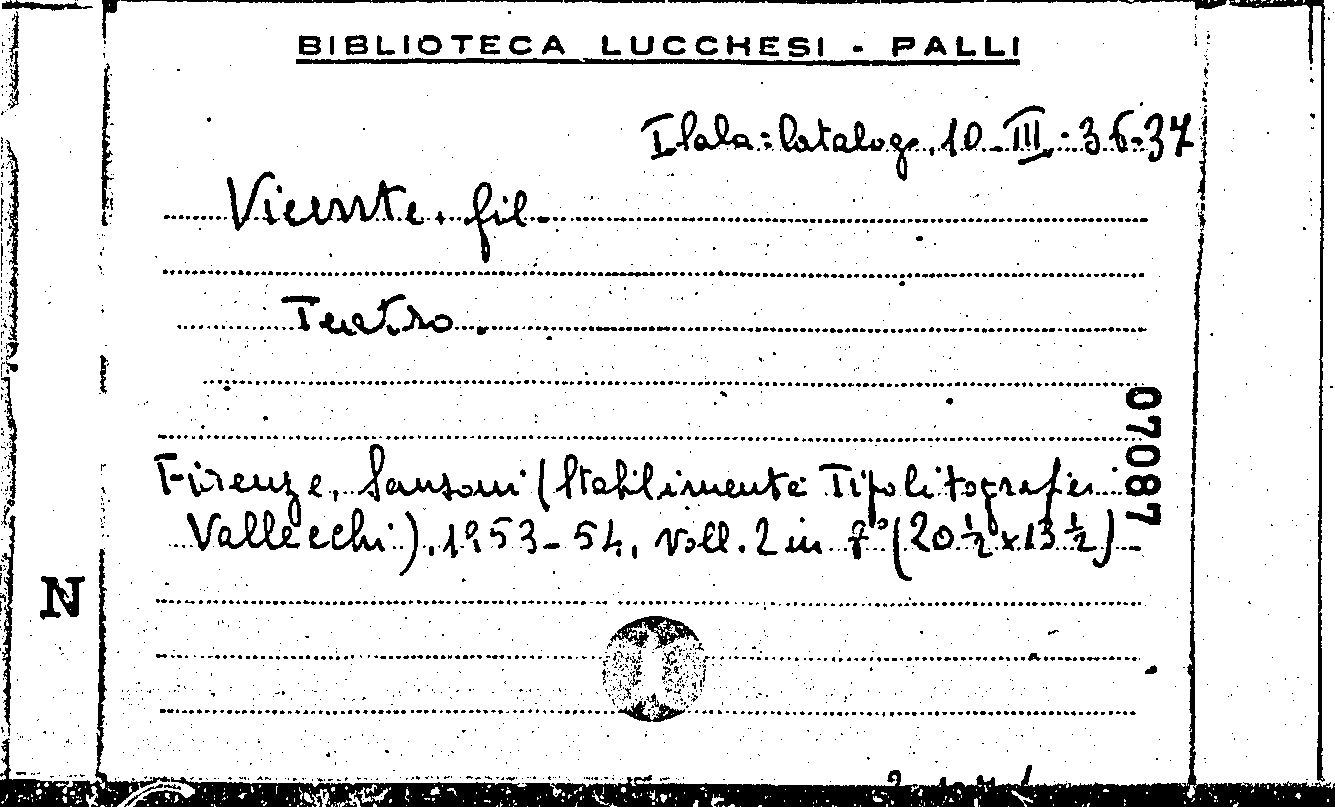 BIBLIOTECA LUCCHESI - PALLI
I Sala: Catalog. 10. III. 36-37
Vicente. Gil.
Teatro.
07087
Firenze, Sansoni (Stabilimento Tipolitografico
Vallecchi), 1953-54, voll. 2 in 8° (20 ½ x 13 ½)
N